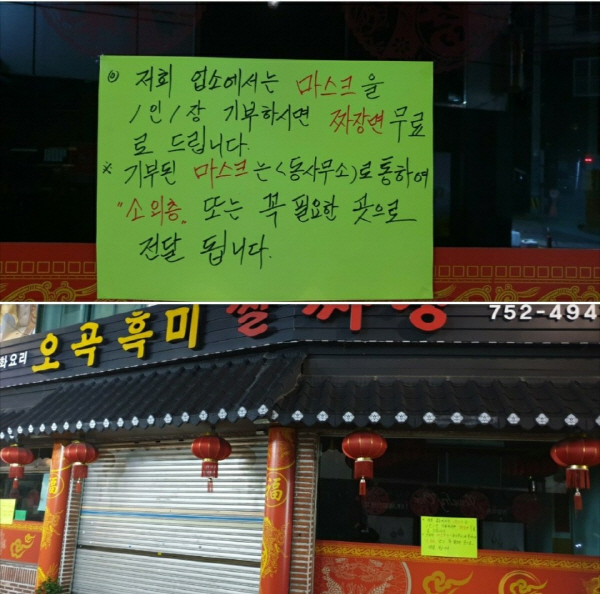 ◎ 저희 업소에서는 마스크을
1인1장 기부하시면 짜장면 무료
로 드립니다.
※ 기부된 마스크는 <동사무소>로 통하여
"소외층" 또는 꼭 필요한 곳으로
전달 됩니다.
752-494
화요리 오곡흑미 쌀짜장
福
福